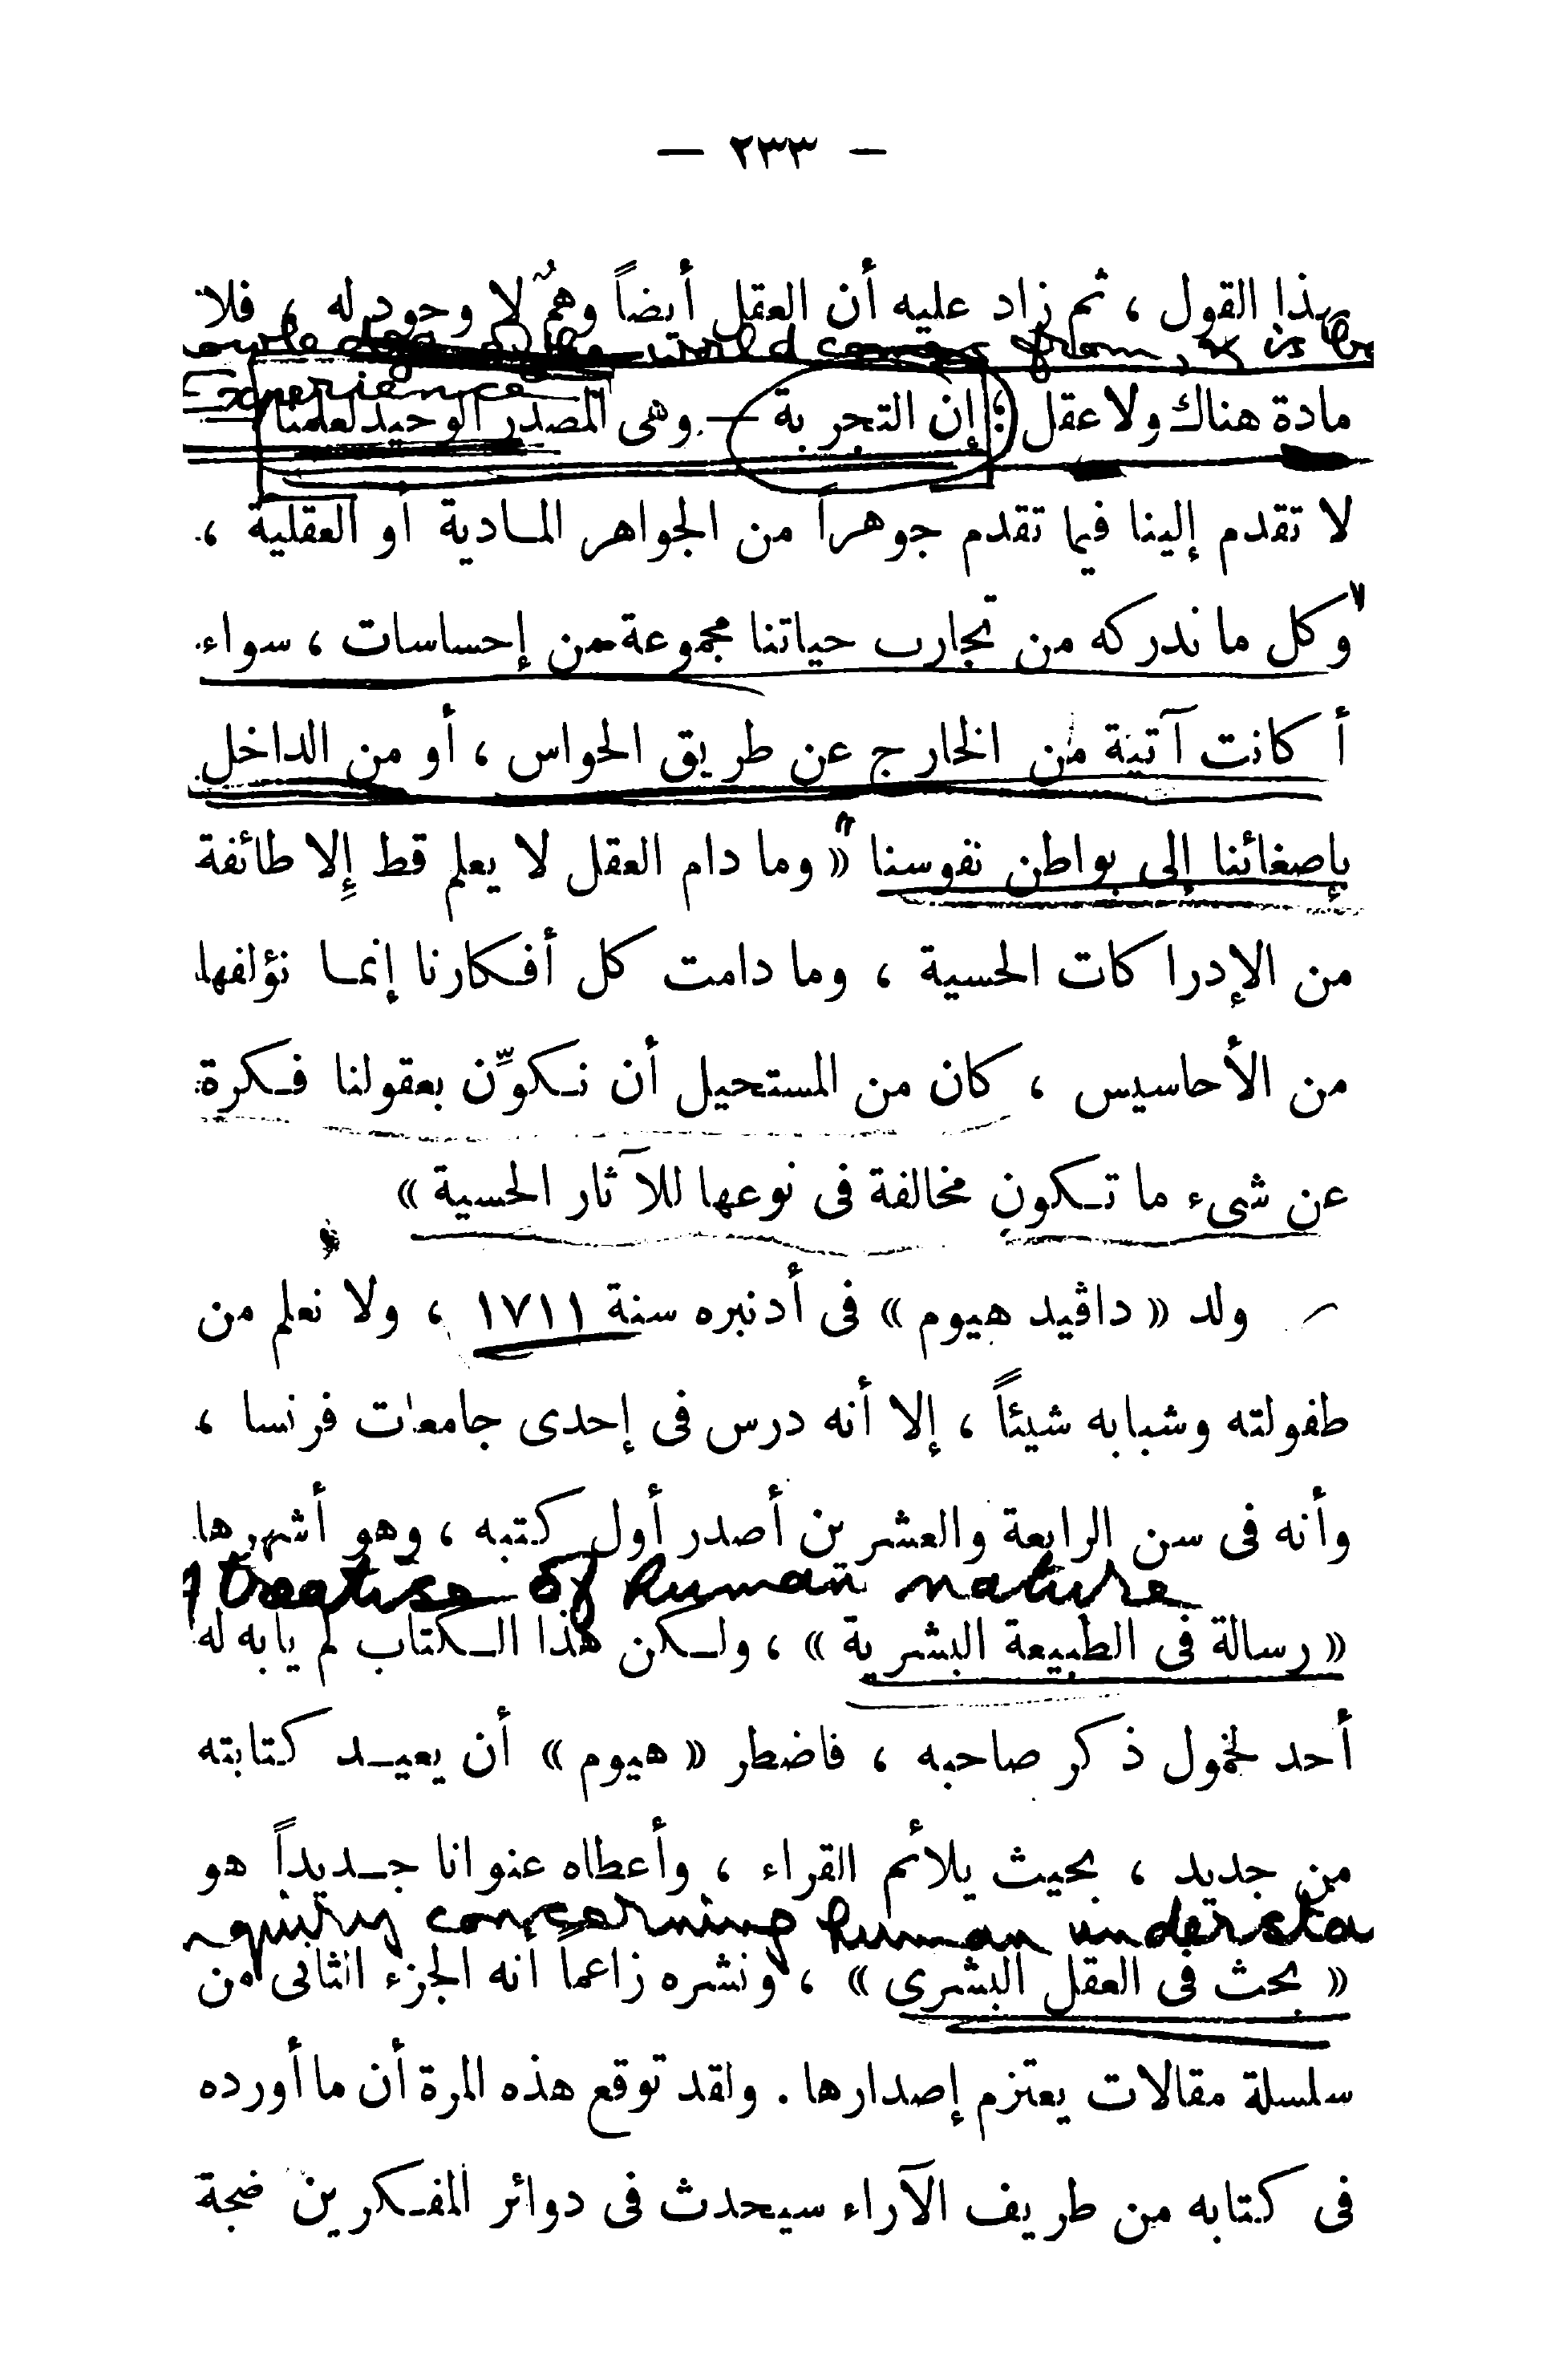 — ٢٣٣ —
بهذا القول ، ثم زاد عليه أن العقل أيضاً وهمٌ لا وجود له ، فلا
the world comes from, is
experience
مادة هناك ولا عقل ؛ إن التجربة — وهى المصدر الوحيد لعلمنا —
لا تقدم إلينا فيما تقدم جوهراً من الجواهر المادية أو العقلية ،
وكل ما ندركه من تجارب حياتنا مجموعة من إحساسات ، سواء
أكانت آتية من الخارج عن طريق الحواس ، أو من الداخل
بإصغائنا إلى بواطن نفوسنا « وما دام العقل لا يعلم قط إلا طائفة
من الإدراكات الحسية ، وما دامت كل أفكارنا إنما نؤلفها
من الأحاسيس ، كان من المستحيل أن نكوِّن بعقولنا فكرة
عن شىء ما تكون مخالفة فى نوعها للآثار الحسية »
ولد « داڤيد هيوم » فى أدنبره سنة ١٧١١ ، ولا نعلم من
طفولته وشبابه شيئاً ، إلا أنه درس فى إحدى جامعات فرنسا ،
وأنه فى سن الرابعة والعشرين أصدر أول كتبه ، وهو أشهرها
A treatise of human nature
« رسالة فى الطبيعة البشرية » ، ولكن هذا الكتاب لم يابه له
أحد لخمول ذكر صاحبه ، فاضطر « هيوم » أن يعيد كتابته
من جديد ، بحيث يلائم القراء ، وأعطاه عنوانا جديداً هو
nquiry concerning human understa
« بحث فى العقل البشرى » ، ونشره زاعماً أنه الجزء الثانى من
سلسلة مقالات يعتزم إصدارها . ولقد توقع هذه المرة أن ما أورده
فى كتابه من طريف الآراء سيحدث فى دوائر المفكرين ضجة